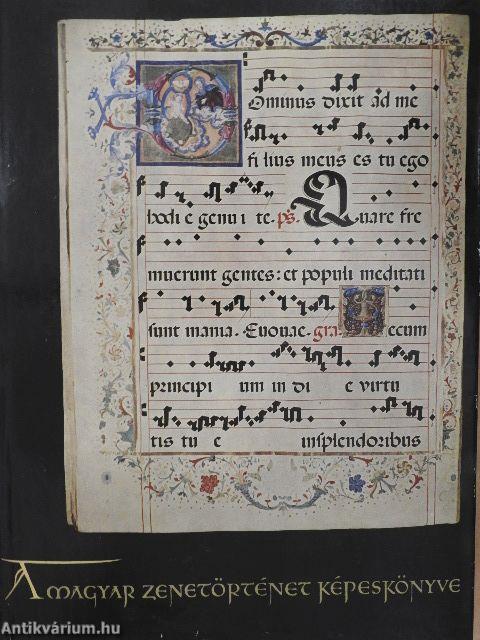 Dominus dixit ad me
fi lius meus es tu ego
hodi e genu i te. ps. Quare fre
muerunt gentes: et populi meditati
sunt inania. Euouae. gra. Tecum
principi um in di e virtu
tis tu e insplendoribus
A MAGYAR ZENETÖRTÉNET KÉPESKÖNYVE
Antikvárium.hu